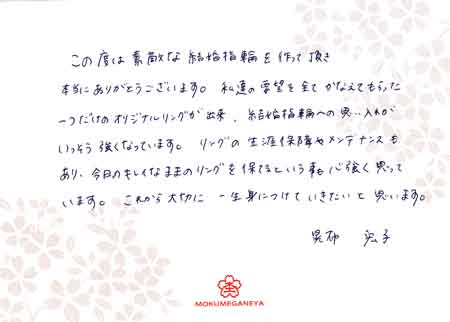 この度は素敵な結婚指輪を作って頂き
本当にありがとうございます。私達の要望を全てかなえてもらった
一つだけのオリジナルリングが出来、結婚指輪への思い入れが
いっそう強くなっています。リングの生涯保障やメンテナンスも
あり、今日のキレイなままのリングを保てるという事も心強く思って
います。これから大切に一生身につけていきたいと思います。
MOKUMEGANEYA